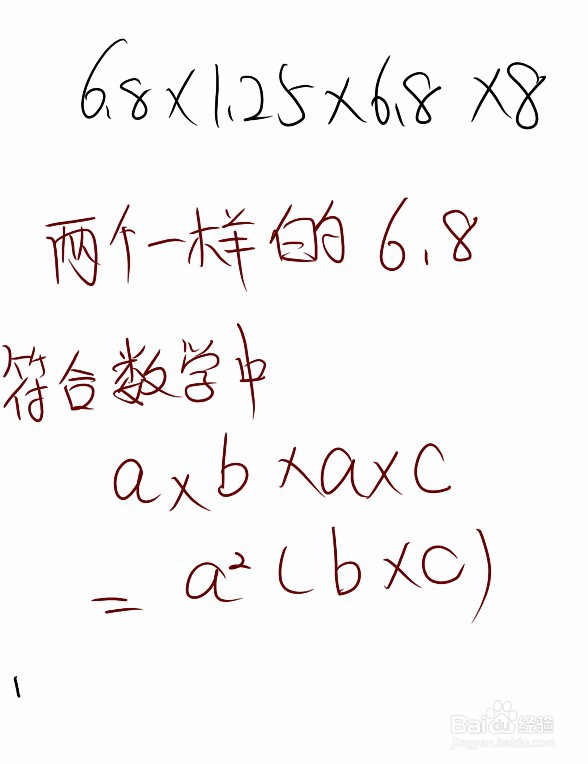 6.8×1.25×6.8×8
两个一样的 6.8
符合数学中
a×b×a×c
= a²(b×c)
Baidu经验
jingyan.baidu.com